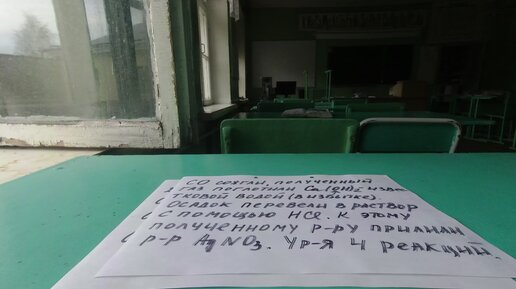 CO сожгли, полученный
газ поглотили Ca(OH)₂ извес
тковой водой (в избытке).
Осадок перевели в раствор
с помощью HCl. К этому
полученному р-ру прилили
р-р AgNO₃. Ур-я 4 реакций.